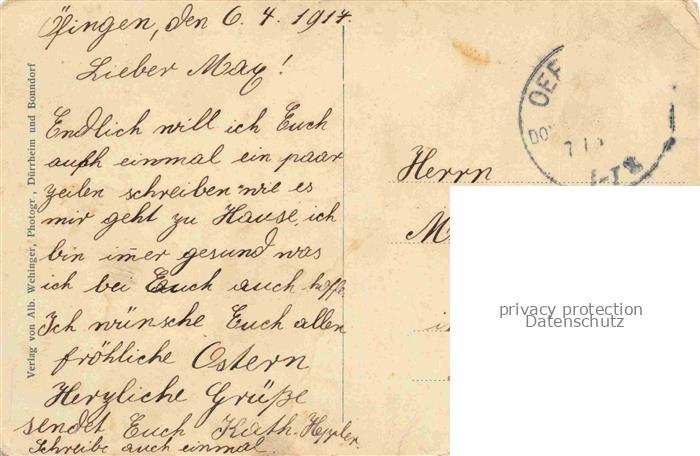 Öfingen, den 6. 4. 1914.
Lieber Max!
Endlich will ich Euch
auch einmal ein paar
zeilen schreiben wie es
mir geht zu Hause, ich
bin immer gesund was
ich bei Euch auch hoffe.
Ich wünsche Euch allen
fröhliche Ostern
Herzliche Grüße
sendet Euch Kath. Heppler.
Schreibe auch einmal.
Verlag von Alb. Wehinger, Photogr., Dürrheim und Bonndorf
OEF
DO
7
Herrn
M
privacy protection
Datenschutz